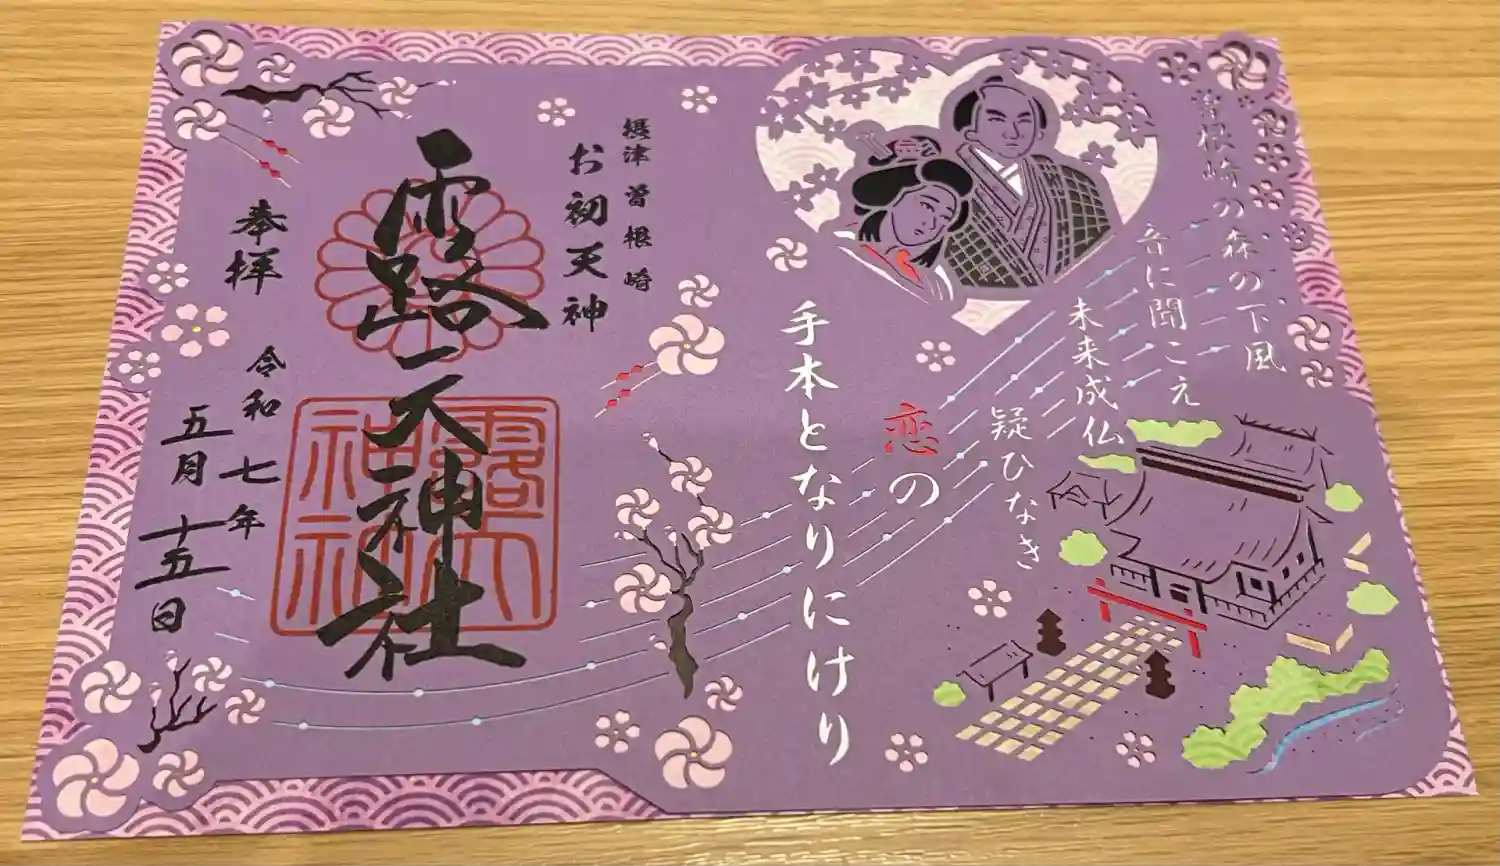 曽根崎の森の下風
音に聞こえ
未来成仏
疑ひなき
恋の
手本となりにけり
摂津 曽根崎
お初天神
露天神社
奉拝
令和七年
五月十五日